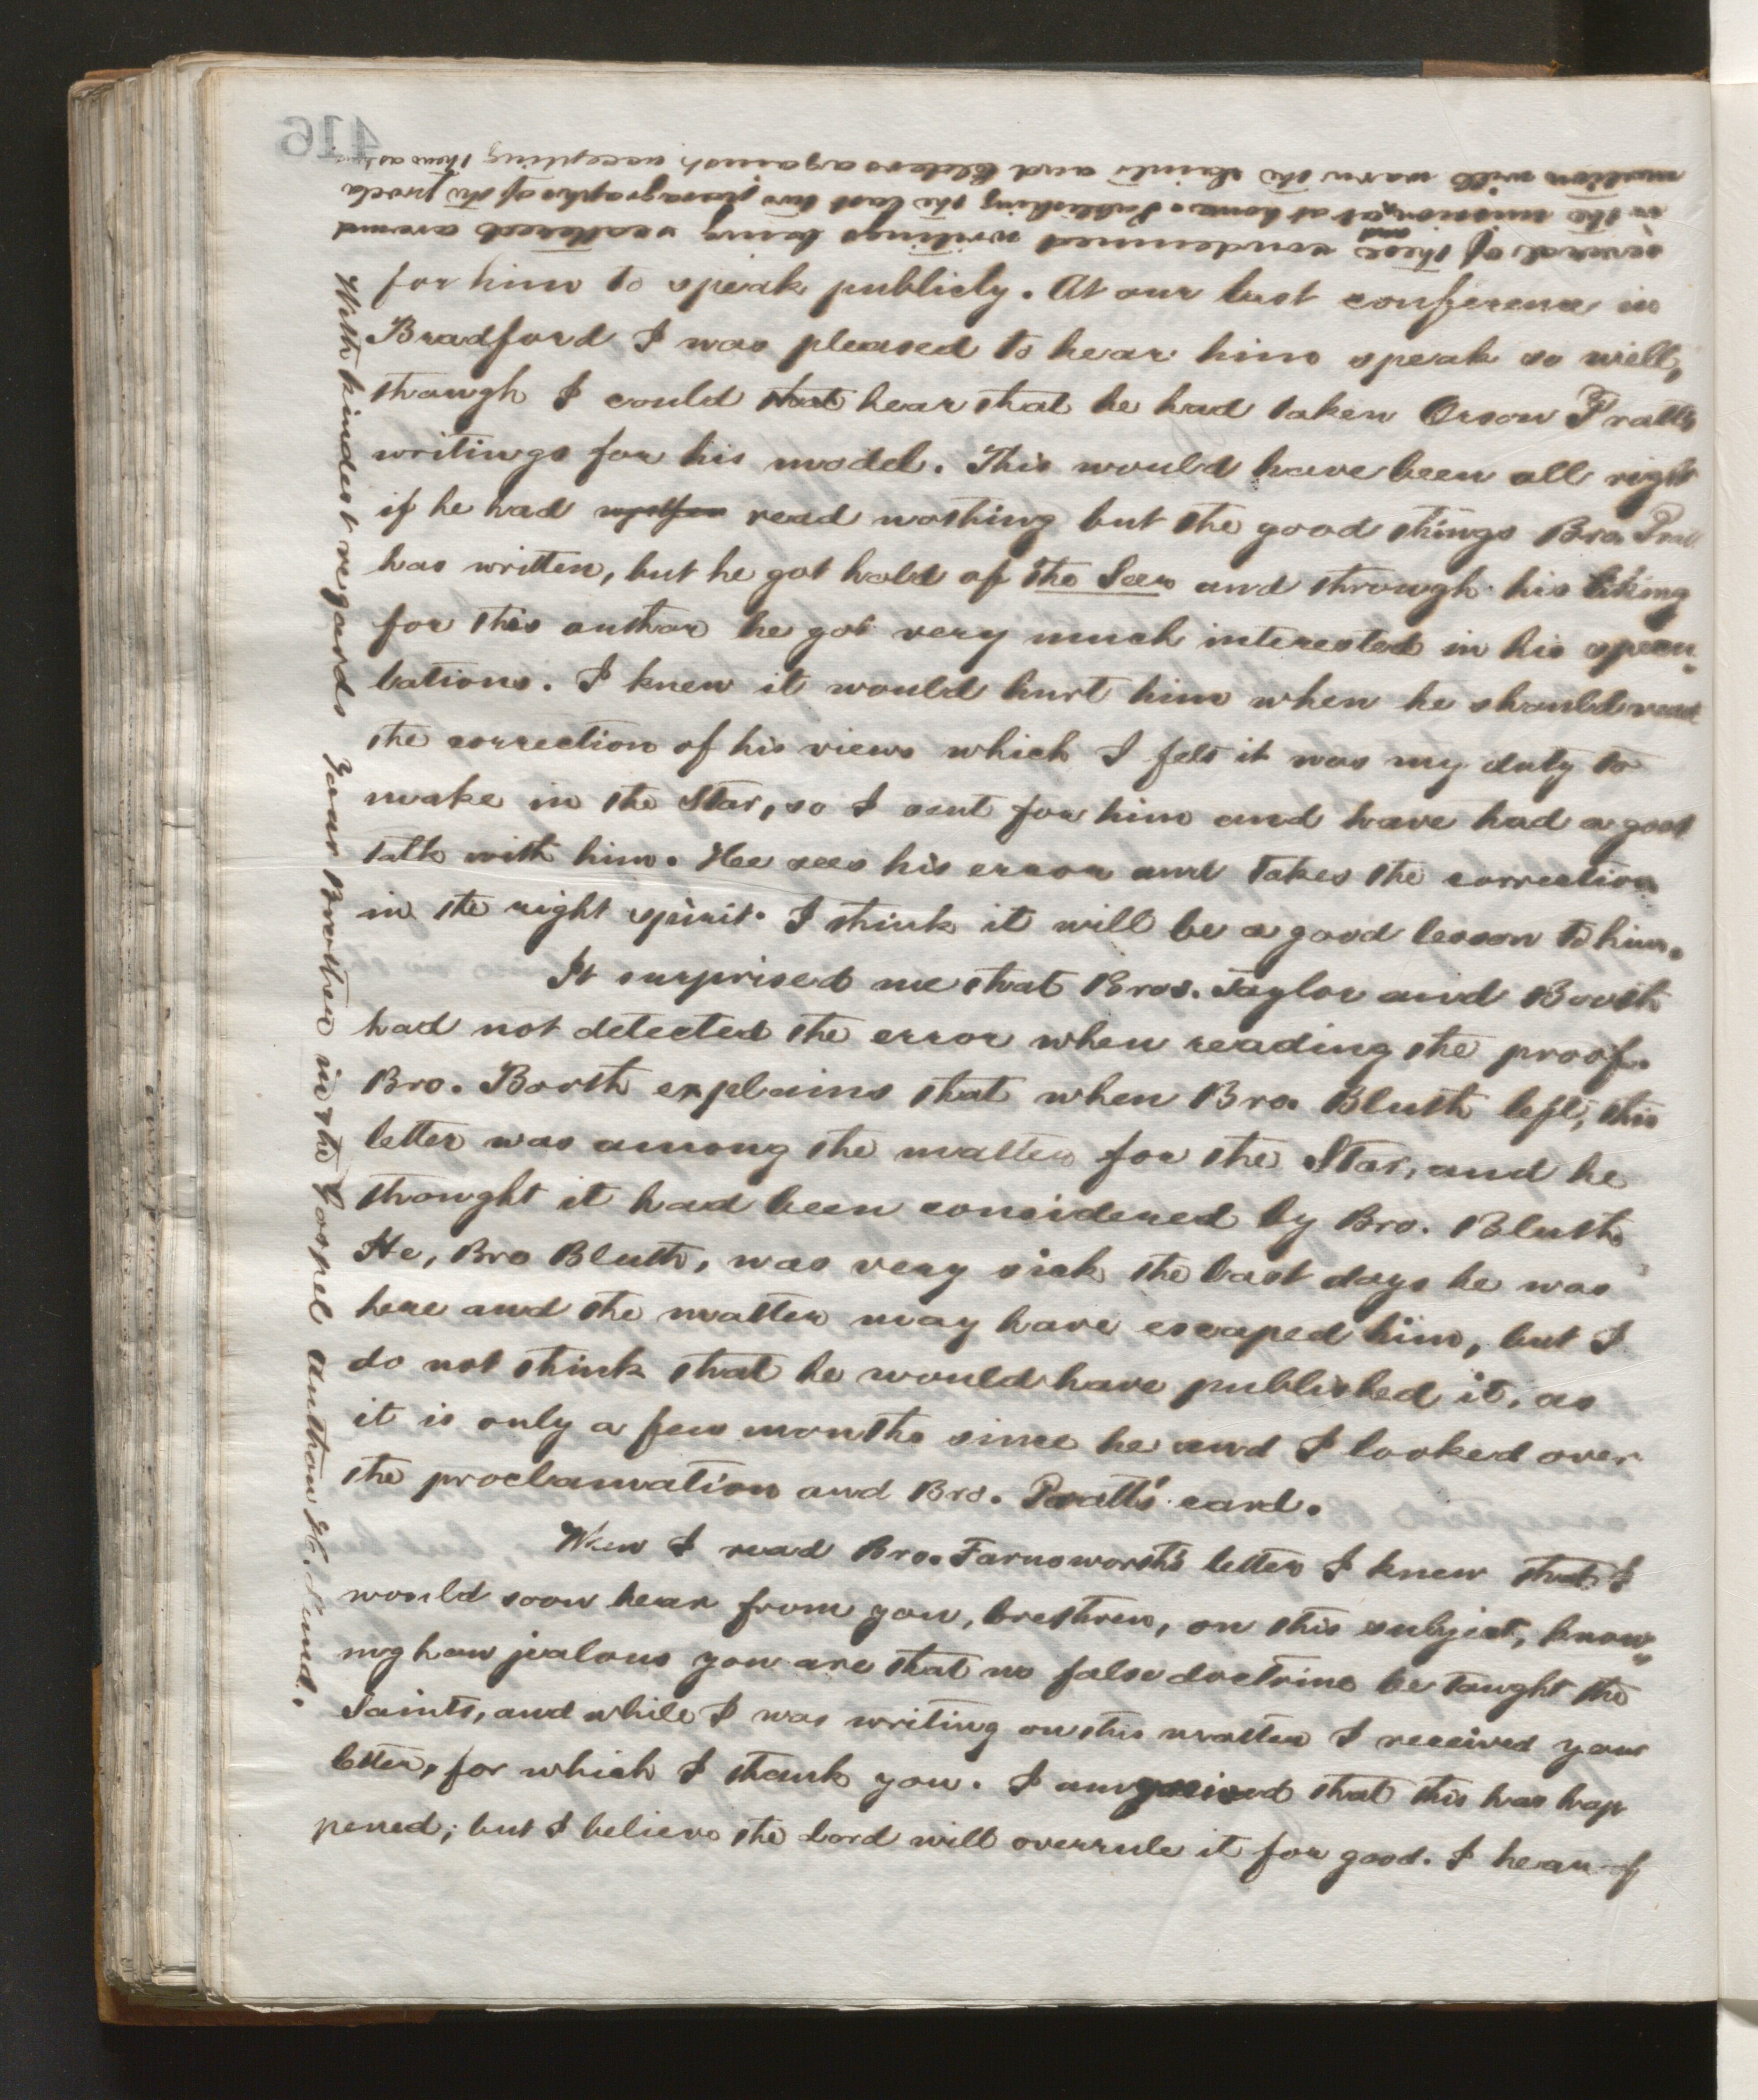 for him to speak publicly. At our last conference in
Bradford I was pleased to hear him speak so well,
though I could that hear that he had taken Orson Pratts
writings for his model. This would have been all right
if he had read nothing but the good things Bro. Prat
has written, but he got hold of the Seer and through his liking
for this author he got very much interested in his specu-
lations. I knew it would hurt him when he should read
the correction of his views which I felt it was my duty to
make in the Star, so I sent for him and have had a good
talk with him. Hee sees his error and takes the correction
in the right spirit. I think it will be a good lesson to him.
It surprised me that Bros. Taylor and Booth
had not detected the error when reading the proof.
Bro. Booth explains that when Bro. Bluth left, this
letter was among the matter for the Star, and he
thought it had been considered by Bro. Bluth.
He, Bro Bluth, was very sick the last days he was
here and the matter may have escaped him, but I
do not think that he would have published it, as
it is only a few months since he and I looked over
the proclamation and Bro. Pratt's card.
When I read Bro. Farnsworth's letter I knew that I
would soon hear from you, brethren, on this subject, know-
ing how jealous you are that no false doctrine be taught the
Saints, and while I was writing on this matter I received your
letter, for which I thank you. I am grieved that this has hap
pened; but I believe the Lord will overrule it for good. I hear of
several of these and condemned writings being scattered around
in the mission, at home. Publishing the last two paragraphs of the procla
mation will warn the Saints and Elders against accepting them as
With kindest regards Your Brother in the Gospel Anthon H. Lund.
416